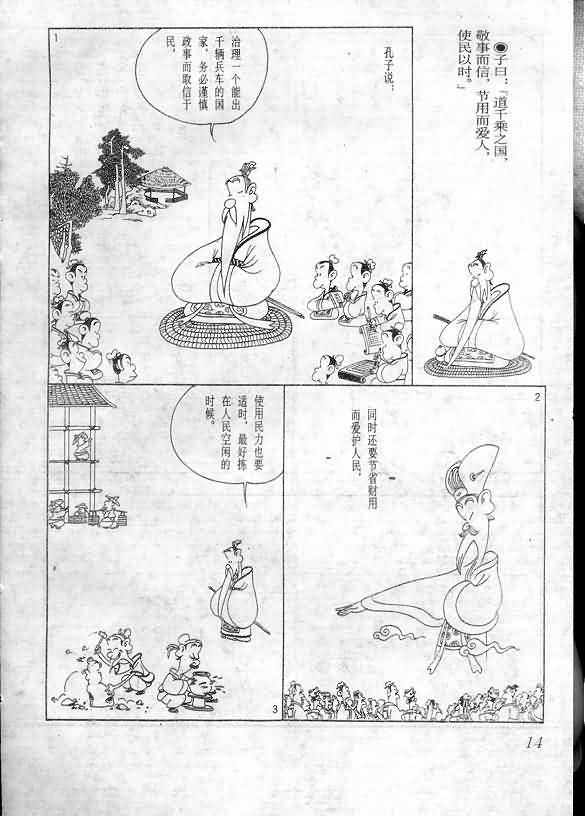 ◉子曰：“道千乘之国，
敬事而信，节用而爱人，
使民以时。”
1
孔子说：
治理一个能出
千辆兵车的国
家，务必谨慎
政事而取信于
民，
2
同时还要节省财用
而爱护人民，
使用民力也要
适时，最好拣
在人民空闲的
时候。
3
14